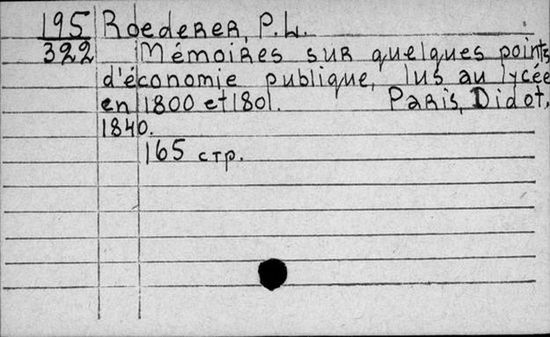 195 Roederer, P.L.
322 Mémoires sur quelques points
d'économie publique, lus au lycée
en 1800 et 1801. Paris, Didot,
1840.
165 стр.